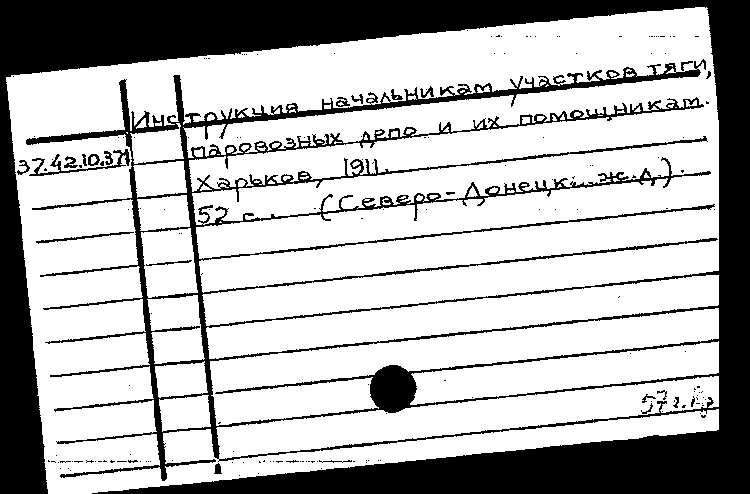 Инструкция начальникам участков тяги,
37.42.10.371 паровозных депо и их помощникам.
Харьков, 1911.
52 с. (Северо-Донецк. ж.д.).
57 г.